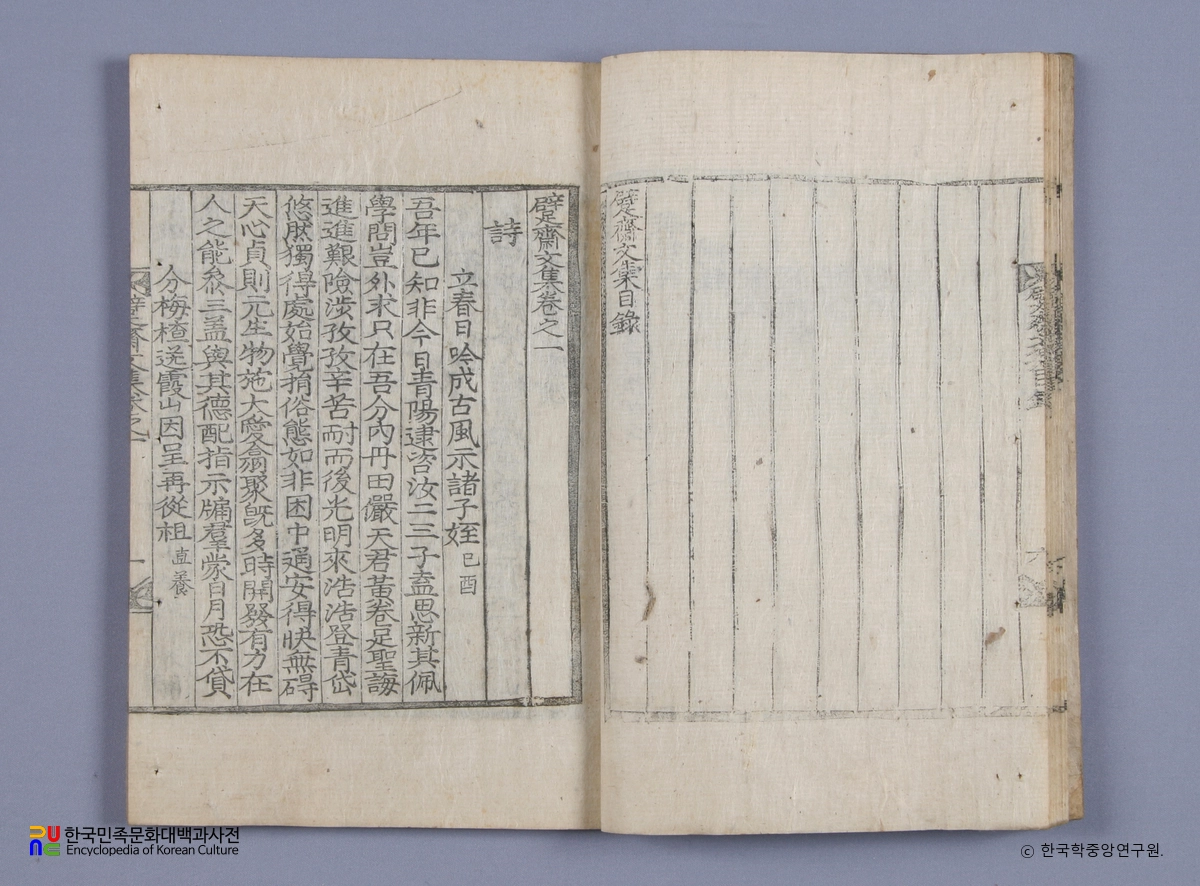 躄齋文集目錄
躄齋文集卷之一
詩
立春日吟成古風示諸子姪 己酉
吾年已知非今日青陽逮咨汝二三子盍思新其佩
學問豈外求只在吾分內丹田儼天君黃卷足聖誨
進進艱險涉孜孜辛苦耐而後光明來浩浩登青岱
悠然獨得處始覺捐俗態如非困中通安得快無碍
天心貞則元生物施大爱翕聚旣多時開發有方在
人之能叅三盖與其德配指示牖羣蒙日月恐不貸
分梅楂送霞山因呈再從祖 直養
한국민족문화대백과사전
Encyclopedia of Korean Culture
© 한국학중앙연구원.